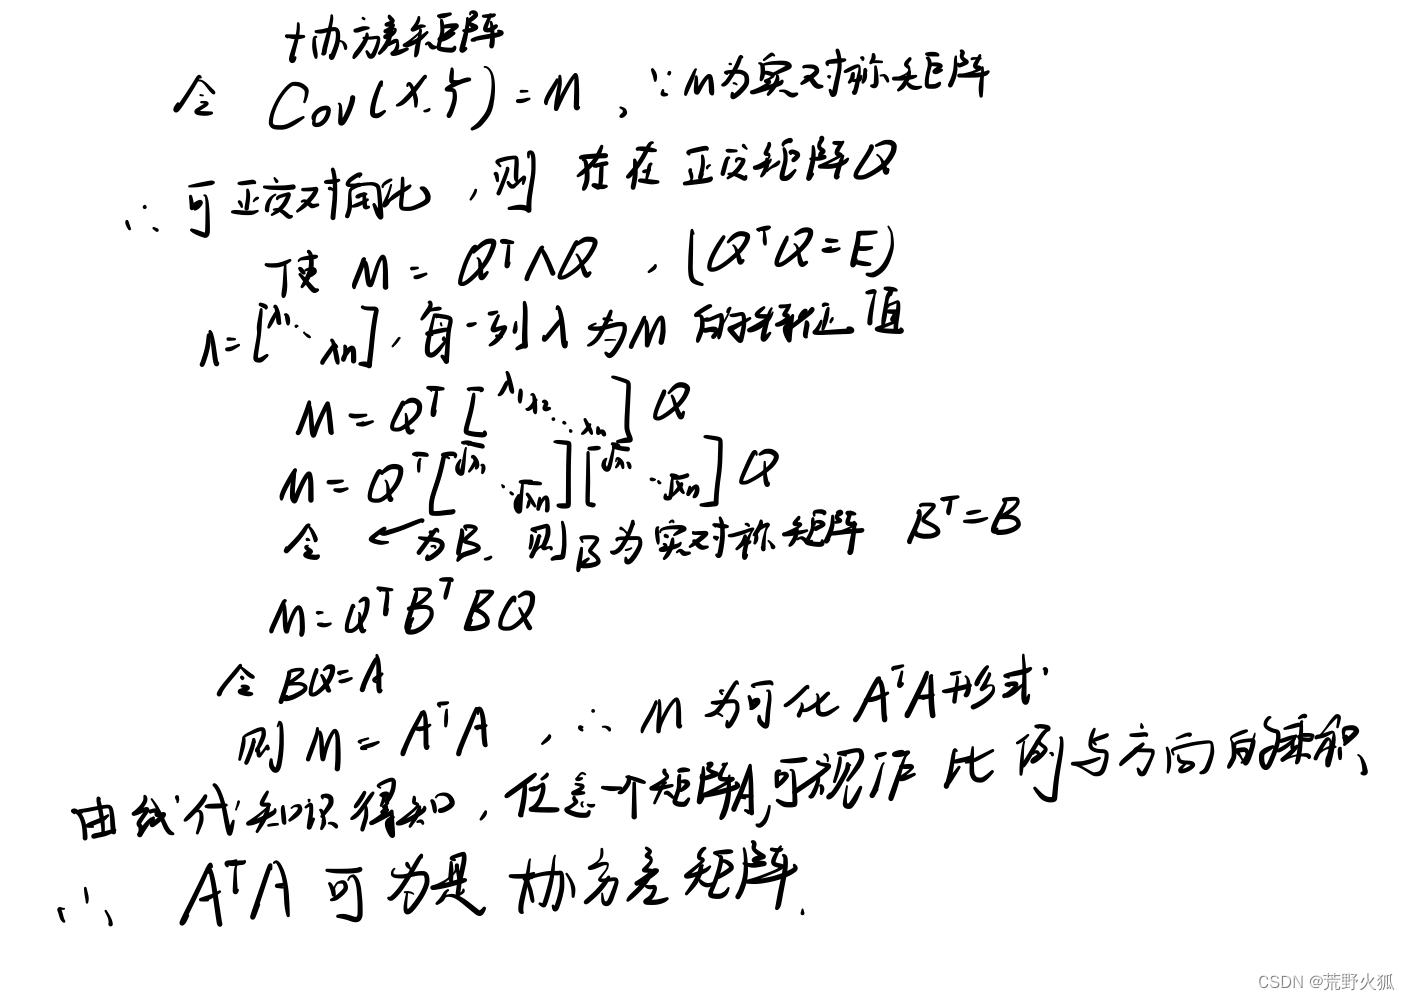 协方差矩阵
令 Cov(X.Y) = M , ∵ M为实对称矩阵
∴ 可正交对角化 , 则 存在 正交矩阵Q
使 M = QᵀΛQ , (QᵀQ = E)
Λ = [λ₁ ⋱ λn] , 每一列λ为M的特征值
M = Qᵀ [λ₁ λ₂ ⋱ λn] Q
M = Qᵀ [√λ₁ ⋱ √λn] [√λ₁ ⋱ √λn] Q
令 ← 为B. 则B为实对称矩阵 Bᵀ = B
M = QᵀBᵀBQ
令 BQ = A
则 M = AᵀA , ∴ M 为可化 AᵀA 形式.
由线代知识得知, 任意一个矩阵A,可视作 比例与方向的乘积、
∴ AᵀA 可为是 协方差矩阵.
CSDN @荒野火狐